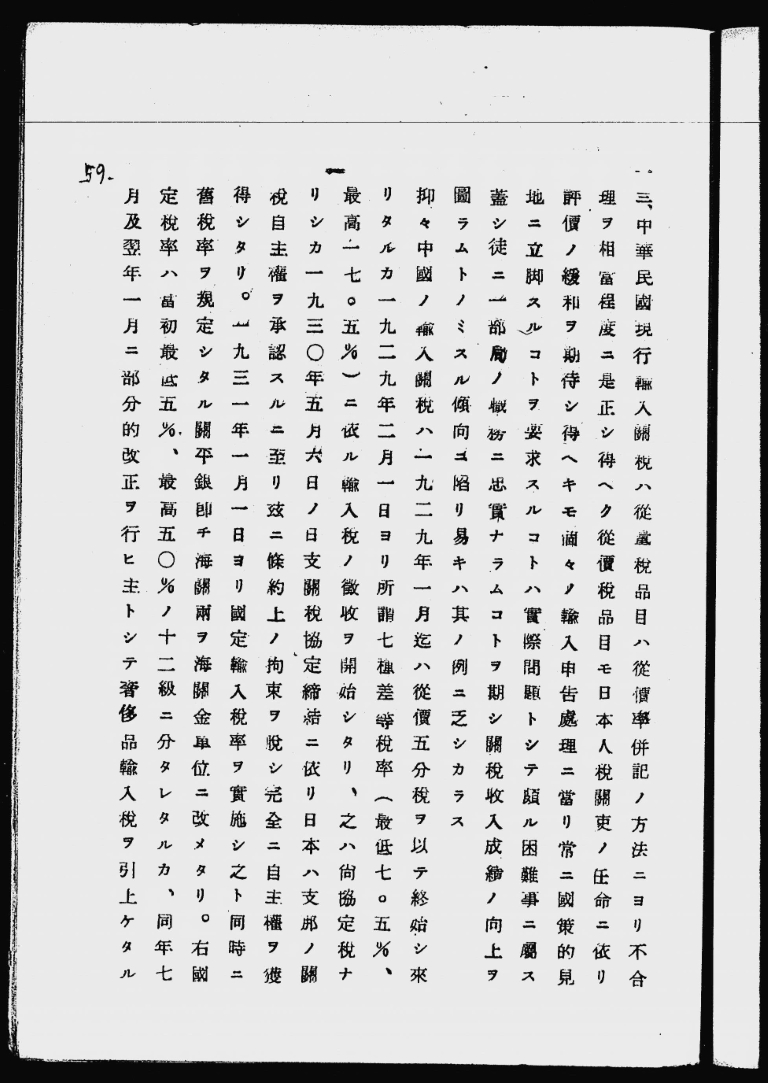 59.
三、中華民國現行輸入關稅ハ從量稅品目ハ從價率併記ノ方法ニヨリ不合
理ヲ相當程度ニ是正シ得ヘク從價稅品目モ日本人稅關吏ノ任命ニ依リ
評價ノ緩和ヲ期待シ得ヘキモ個々ノ輸入申告處理ニ當リ常ニ國策的見
地ニ立脚スルコトヲ要求スルコトハ實際問題トシテ頗ル困難事ニ屬ス
蓋シ徒ニ一部局ノ職務ニ忠實ナラムコトヲ期シ關稅收入成績ノ向上ヲ
圖ラムトノミスル傾向ニ陷リ易キハ其ノ例ニ乏シカラス
抑々中國ノ輸入關稅ハ一九二九年一月迄ハ從價五分稅ヲ以テ終始シ來
リタルカ一九二九年二月一日ヨリ所謂七種差等稅率(最低七。五%、
最高一七。五%)ニ依ル輸入稅ノ徵收ヲ開始シタリ、之ハ尙協定稅ナ
リシカ一九三〇年五月六日ノ日支關稅協定締結ニ依リ日本ハ支那ノ關
稅自主權ヲ承認スルニ至リ玆ニ條約上ノ拘束ヲ脫シ完全ニ自主權ヲ獲
得シタリ。一九三一年一月一日ヨリ國定輸入稅率ヲ實施シ之ト同時ニ
舊稅率ヲ規定シタル關平銀卽チ海關兩ヲ海關金單位ニ改メタリ。右國
定稅率ハ當初最低五%、最高五〇%ノ十二級ニ分タレタルカ、同年七
月及翌年一月ニ部分的改正ヲ行ヒ主トシテ奢侈品輸入稅ヲ引上ケタル